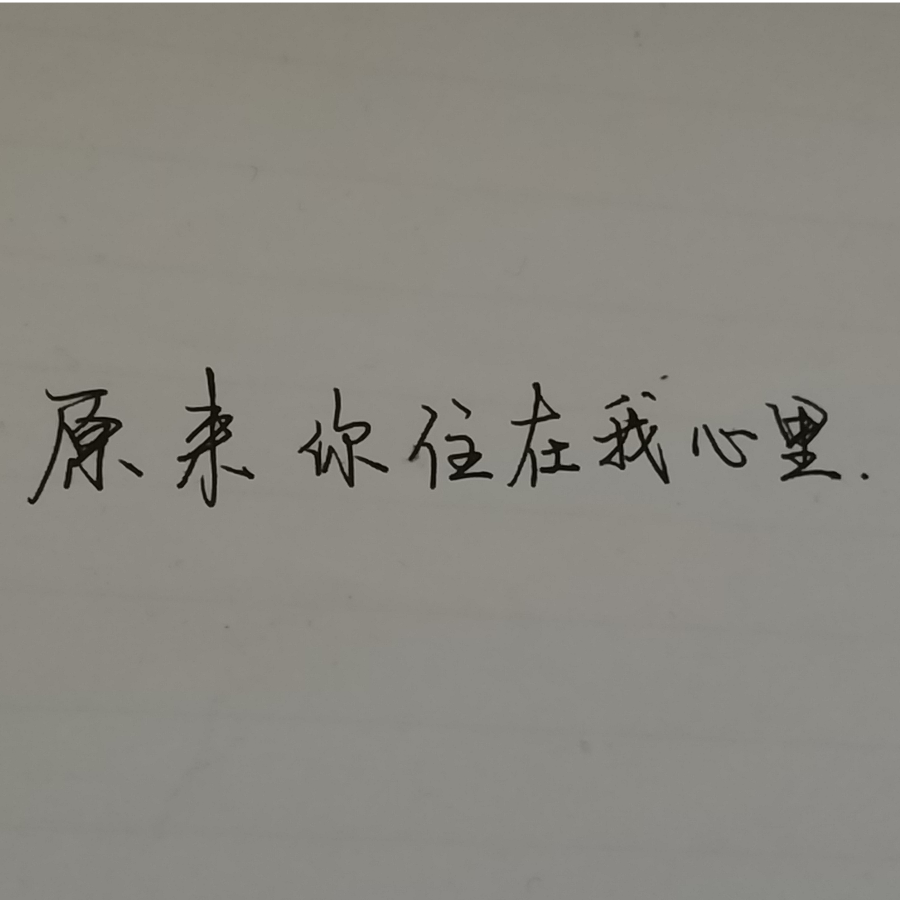 原来你住在我心里.